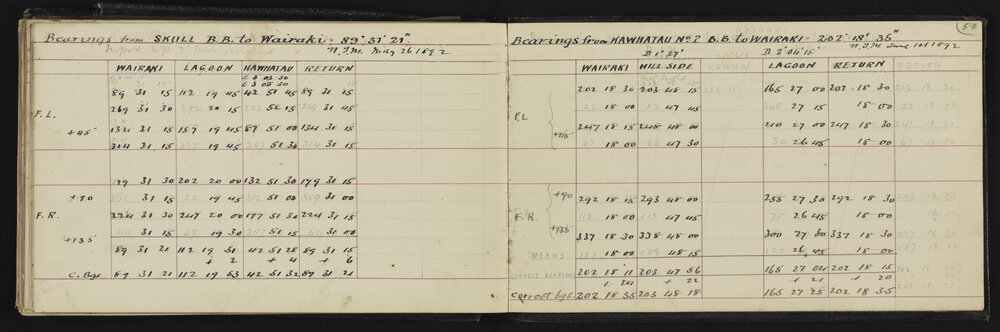 Bearings from SKULL B.B. to Wairaki = 89° 31' 21"
N.J.M. May 26 1892
WAIRAKI LAGOON KAWHATAU RETURN
89 31 15 112 19 45 42 51 45 89 31 15
F.L.
269 31 30 292 20 15 222 52 15 269 31 45
+45° 134 31 15 157 19 45 87 51 00 134 31 15
314 31 15 337 19 45 267 51 30 314 31 15
179 31 30 202 20 00 132 51 30 179 31 15
+90 359 31 15 22 19 45 312 51 00 359 31 00
F.R. 224 31 30 247 20 00 177 51 30 224 31 15
+135 44 31 15 67 19 30 357 51 15 44 31 15
89 31 21 112 19 51 42 51 28 89 31 15
+ 2 + 4 + 6
C. Bgs. 89 31 21 112 19 53 42 51 32 89 31 21
Bearings from KAWHATAU No 2 B.B. to WAIRAKI = 202° 18' 35"
N.J.M. June 1st 1892
D 1° 27' D 2° 04' 15"
WAIRAKI HILL SIDE KOWHAI LAGOON RETURN RETURN
202 18 30 203 48 15 165 27 00 202 18 30 202 18 30
F.L 22 18 00 23 47 45 345 27 15 18 00 22 18 00
+45 247 18 15 248 48 00 210 27 00 247 18 30 247 18 30
67 18 00 68 47 30 30 26 45 18 00 67 18 00
+90 292 18 15 293 48 00 255 27 30 292 18 30 292 18 30
F.R. 112 18 00 113 47 45 75 26 45 18 00
+135 337 18 30 338 48 00 300 27 30 337 18 30 337 18 30
MEANS 157 18 00 158 47 45 120 26 45 18 00 157 18 00
CORRECT BEARINGS 202 18 11 203 47 56 165 27 04 202 18 15
+ 24 + 22 + 21 + 20
correct bgs. 202 18 35 203 48 18 165 27 25 202 18 35